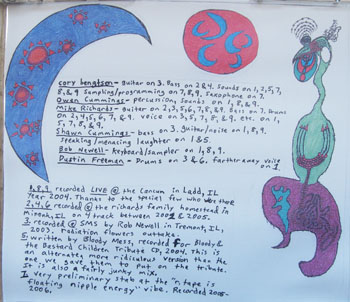 cory bengtsen - guitar on 3. Bass on 2 & 4. sounds on 1, 2, 5, 7,
8, & 9 sampling/programming on 7, 8, 9, saxophone on 7.
Owen Cummings - percussion, sounds on 1, 8, & 9.
Mike Richards - guitar on 2, 3, 5, 6, 7, 8, & 9. bass on 7. Drums
on 2, 4, 5, 6, 7, & 9. voice on 3, 5, 7, 8, & 9. etc. on 1,
5, 7, 8, & 9.
Shawn Cummings - bass on 3. guitar/noise on 1, 8, 9.
speaking/menacing laughter on 1 & 5.
Bob Newell - keyboard/sampler on 1, 8, 9.
Dustin Freeman - Drums on 3 & 6. farther away voice
on 1
1, 8, 9, recorded LIVE @ the Conium in Ladd, IL
Year 2004. Thanks to the special few who were there
2, 4, 6 recorded @ the richards family homestead in
Minonk, IL on 4 track between 2001 & 2005.
3 recorded @ SMS by Rob Newell in Tremont, IL,
2003. radiation flowers outtake.
5 written by Bloody Mess, recorded for Bloody &
the Bastard Children Tribute CD, 2004. This is
an alternate, more ridiculous version than the
one we gave them to put on the tribute.
It is also a fairly junky mix.
7 very preliminary stab at the "n. tape is
floating nipple energy" vibe. Recorded 2005-
2006.